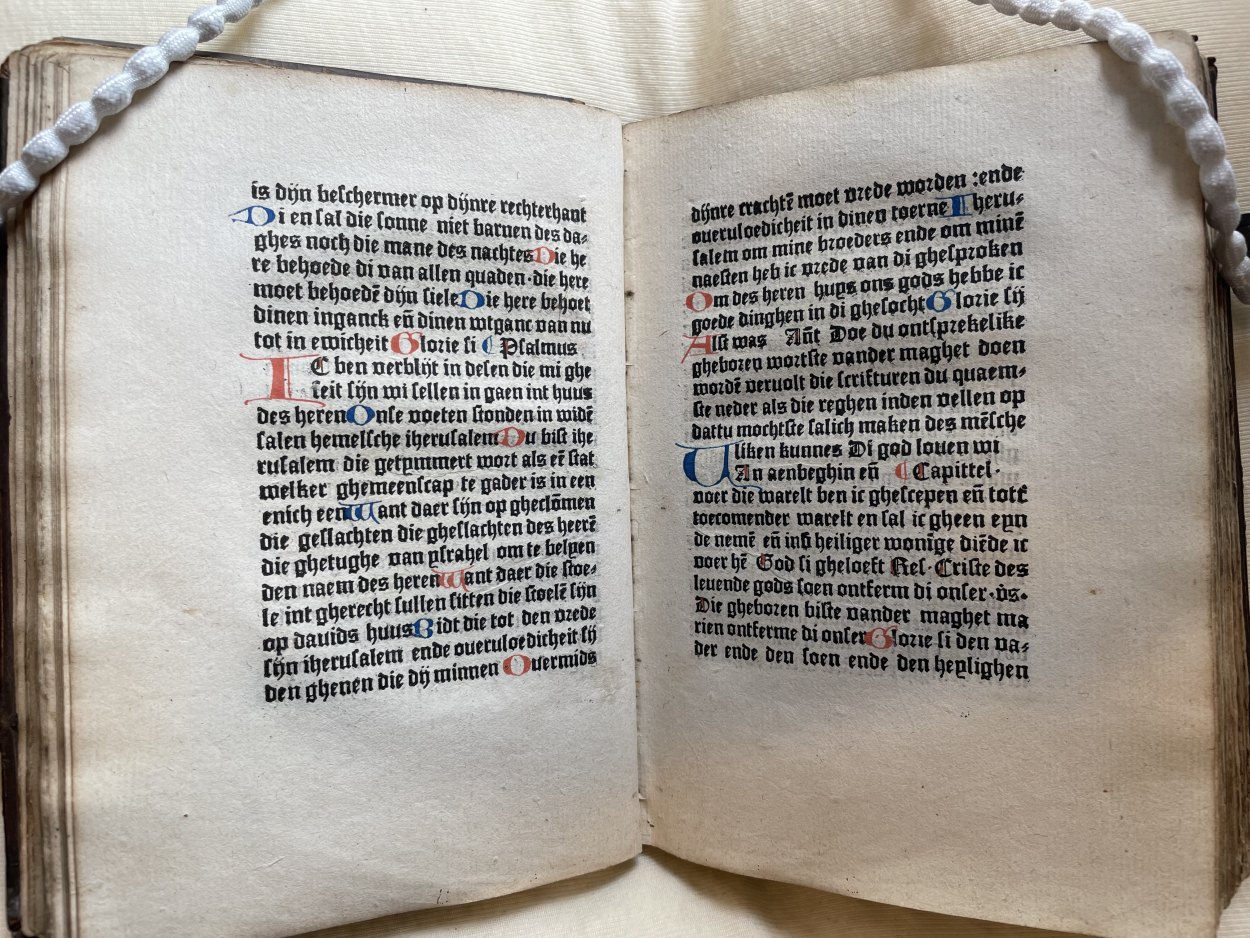 is dijn beschermer op dijnre rechterhant
Di en sal die sonne niet barnen des da⸗
ghes noch die mane des nachtes Die he
re behoede di van allen quaden·die here
moet behoedē dijn siele Die here behoet
dinen inganck eñ dinen wtganc van nu
tot in ewicheit Glorie si Psalmus
IC ben verblijt in desen die mi ghe
seit sijn wi sellen in gaen int huus
des heren Onse voeten stonden in widē
salen hemelsche iherusalem Du bist ihe
rusalem die getymmert wort als eē stat
welker ghemeenscap te gader is in een
enich een Want daer sijn op gheclōmen
die geslachten die gheslachten des heerē
die ghetughe van ysrahel om te belyen
den naem des heren Want daer die stoe⸗
le int gherecht sullen sitten die stoelē sijn
op dauids huus Bidt die tot den vrede
sijn iherusalem ende oueruloedicheit sij
den ghenen die dij minnen Ouermids
dijnre crachtē moet vrede worden :ende
oueruloedicheit in dinen toerne Iheru⸗
salem om mine broeders ende om minē
naesten heb ic vrede van di ghesproken
Om des heren huys ons gods hebbe ic
goede dinghen in di ghesocht Glorie sij
Alst was Añt Doe du ontsprekelike
gheboren wortste vander maghet doen
wordē veruolt die scrifturen du quaem⸗
ste neder als die reghen inden vellen op
dattu mochtste salich maken des mēsche
liken kunnes Di god louen wi
UAn aenbeghin eñ Capittel·
voer die warelt ben ic ghescepen eñ tott
toecomender warelt en sal ic gheen eyn
de nemē eñ inb heiliger wonīge diēde ic
voer hē God si gheloeft Res·Criste des
leuende gods soen ontferm di onser·v̄s·
Die gheboren biste vander maghet ma
rien ontferme di onser Glorie si den va⸗
der ende den soen ende den heylighen